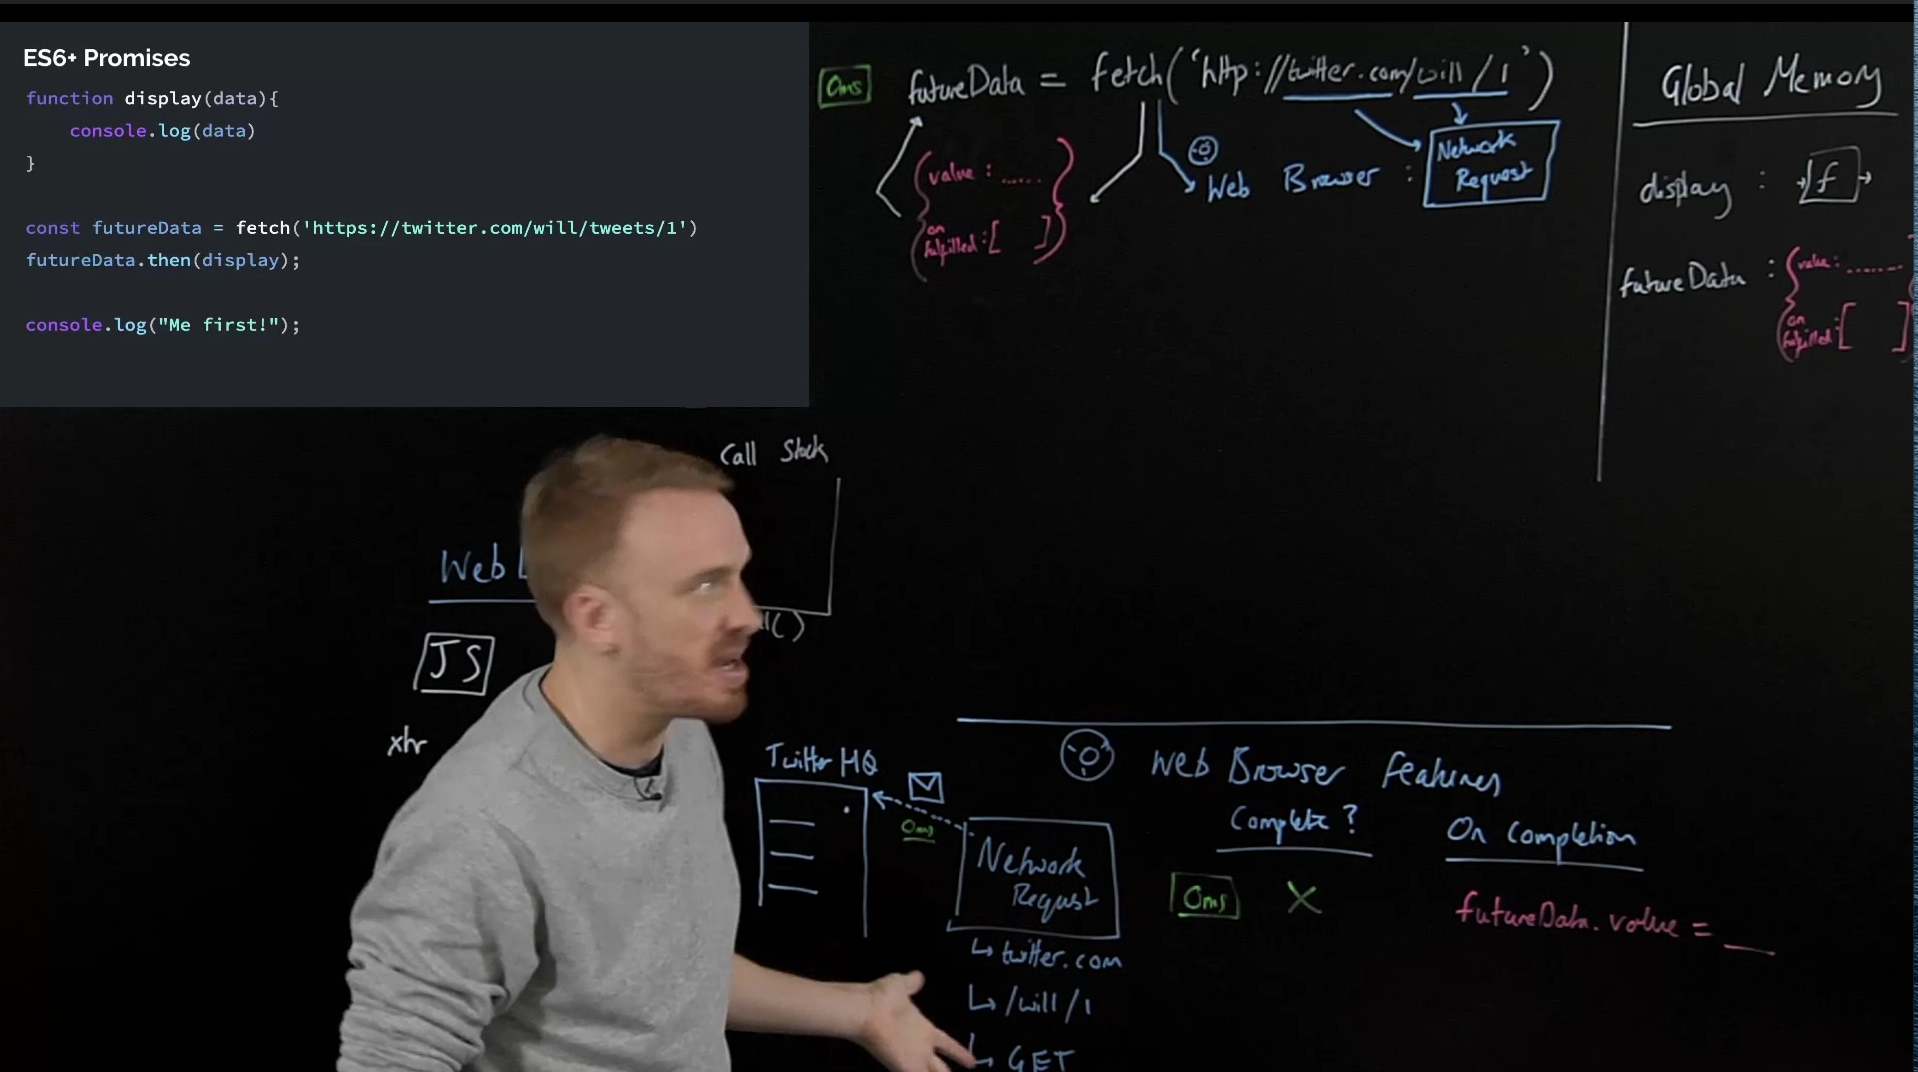 ES6+ Promises
function display(data){
    console.log(data)
}
const futureData = fetch('https://twitter.com/will/tweets/1')
futureData.then(display);
console.log("Me first!");
0ms futureData = fetch('http://twitter.com/will/1')
{value : ......
on
fulfilled:[ ]}
Web Browser :
Network
Request
Global Memory
display : f
futureData : {value : ........
on
fulfilled:[ ]
Call Stack
Web
JS
xhr
Twitter HQ
0ms
Network
Request
twitter.com
/will/1
GET
Web Browser Features
Complete ?
On Completion
0ms X
futureData.value = __